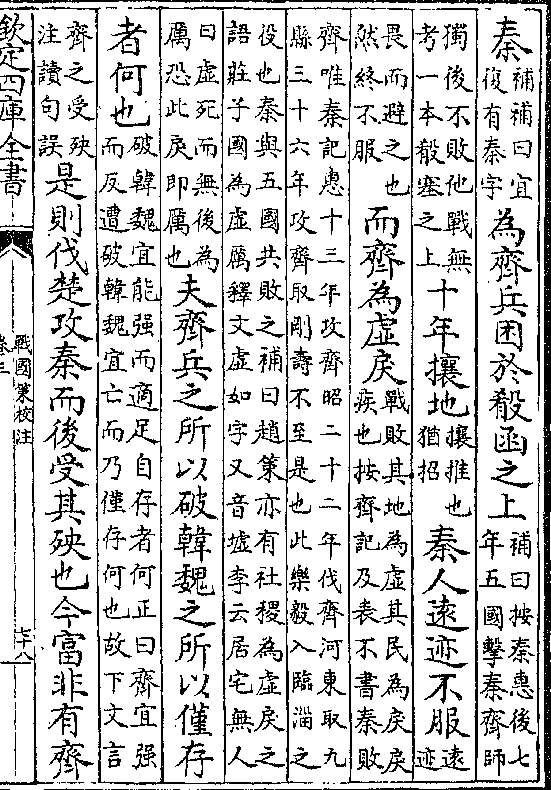 秦補補曰宜復有秦字為齊兵困於殽函之上補曰按秦惠後七年五國擊秦齊師
獨後不敗他戰無考一本殽塞之上十年攘地攘推也猶招秦人遠迹不服遠迹
畏而避之也然終不服而齊為虛戾戰敗其地為虛其民為戾戾疾也按齊記及表不書秦敗
齊唯秦記惠十三年攻齊昭二十二年伐齊河東取九縣三十六年攻齊取剛壽不至是也此樂毅入臨淄之
役也秦與五國共敗之補曰趙策亦有社稷為虛戾之語莊子國為虛厲釋文虛如字又音墟李云居宅無人
曰虛死而無後為厲恐此戾即厲也夫齊兵之所以破韓魏之所以僅存
者何也破韓魏宜能强而適足自存者何正曰齊宜强而反遭破韓魏宜亡而乃僅存何也故下文言
齊之受殃注讀句誤是則伐楚攻秦而後受其殃也今富非有齊
欽定四庫全書
戰國策校注
卷三
七十八